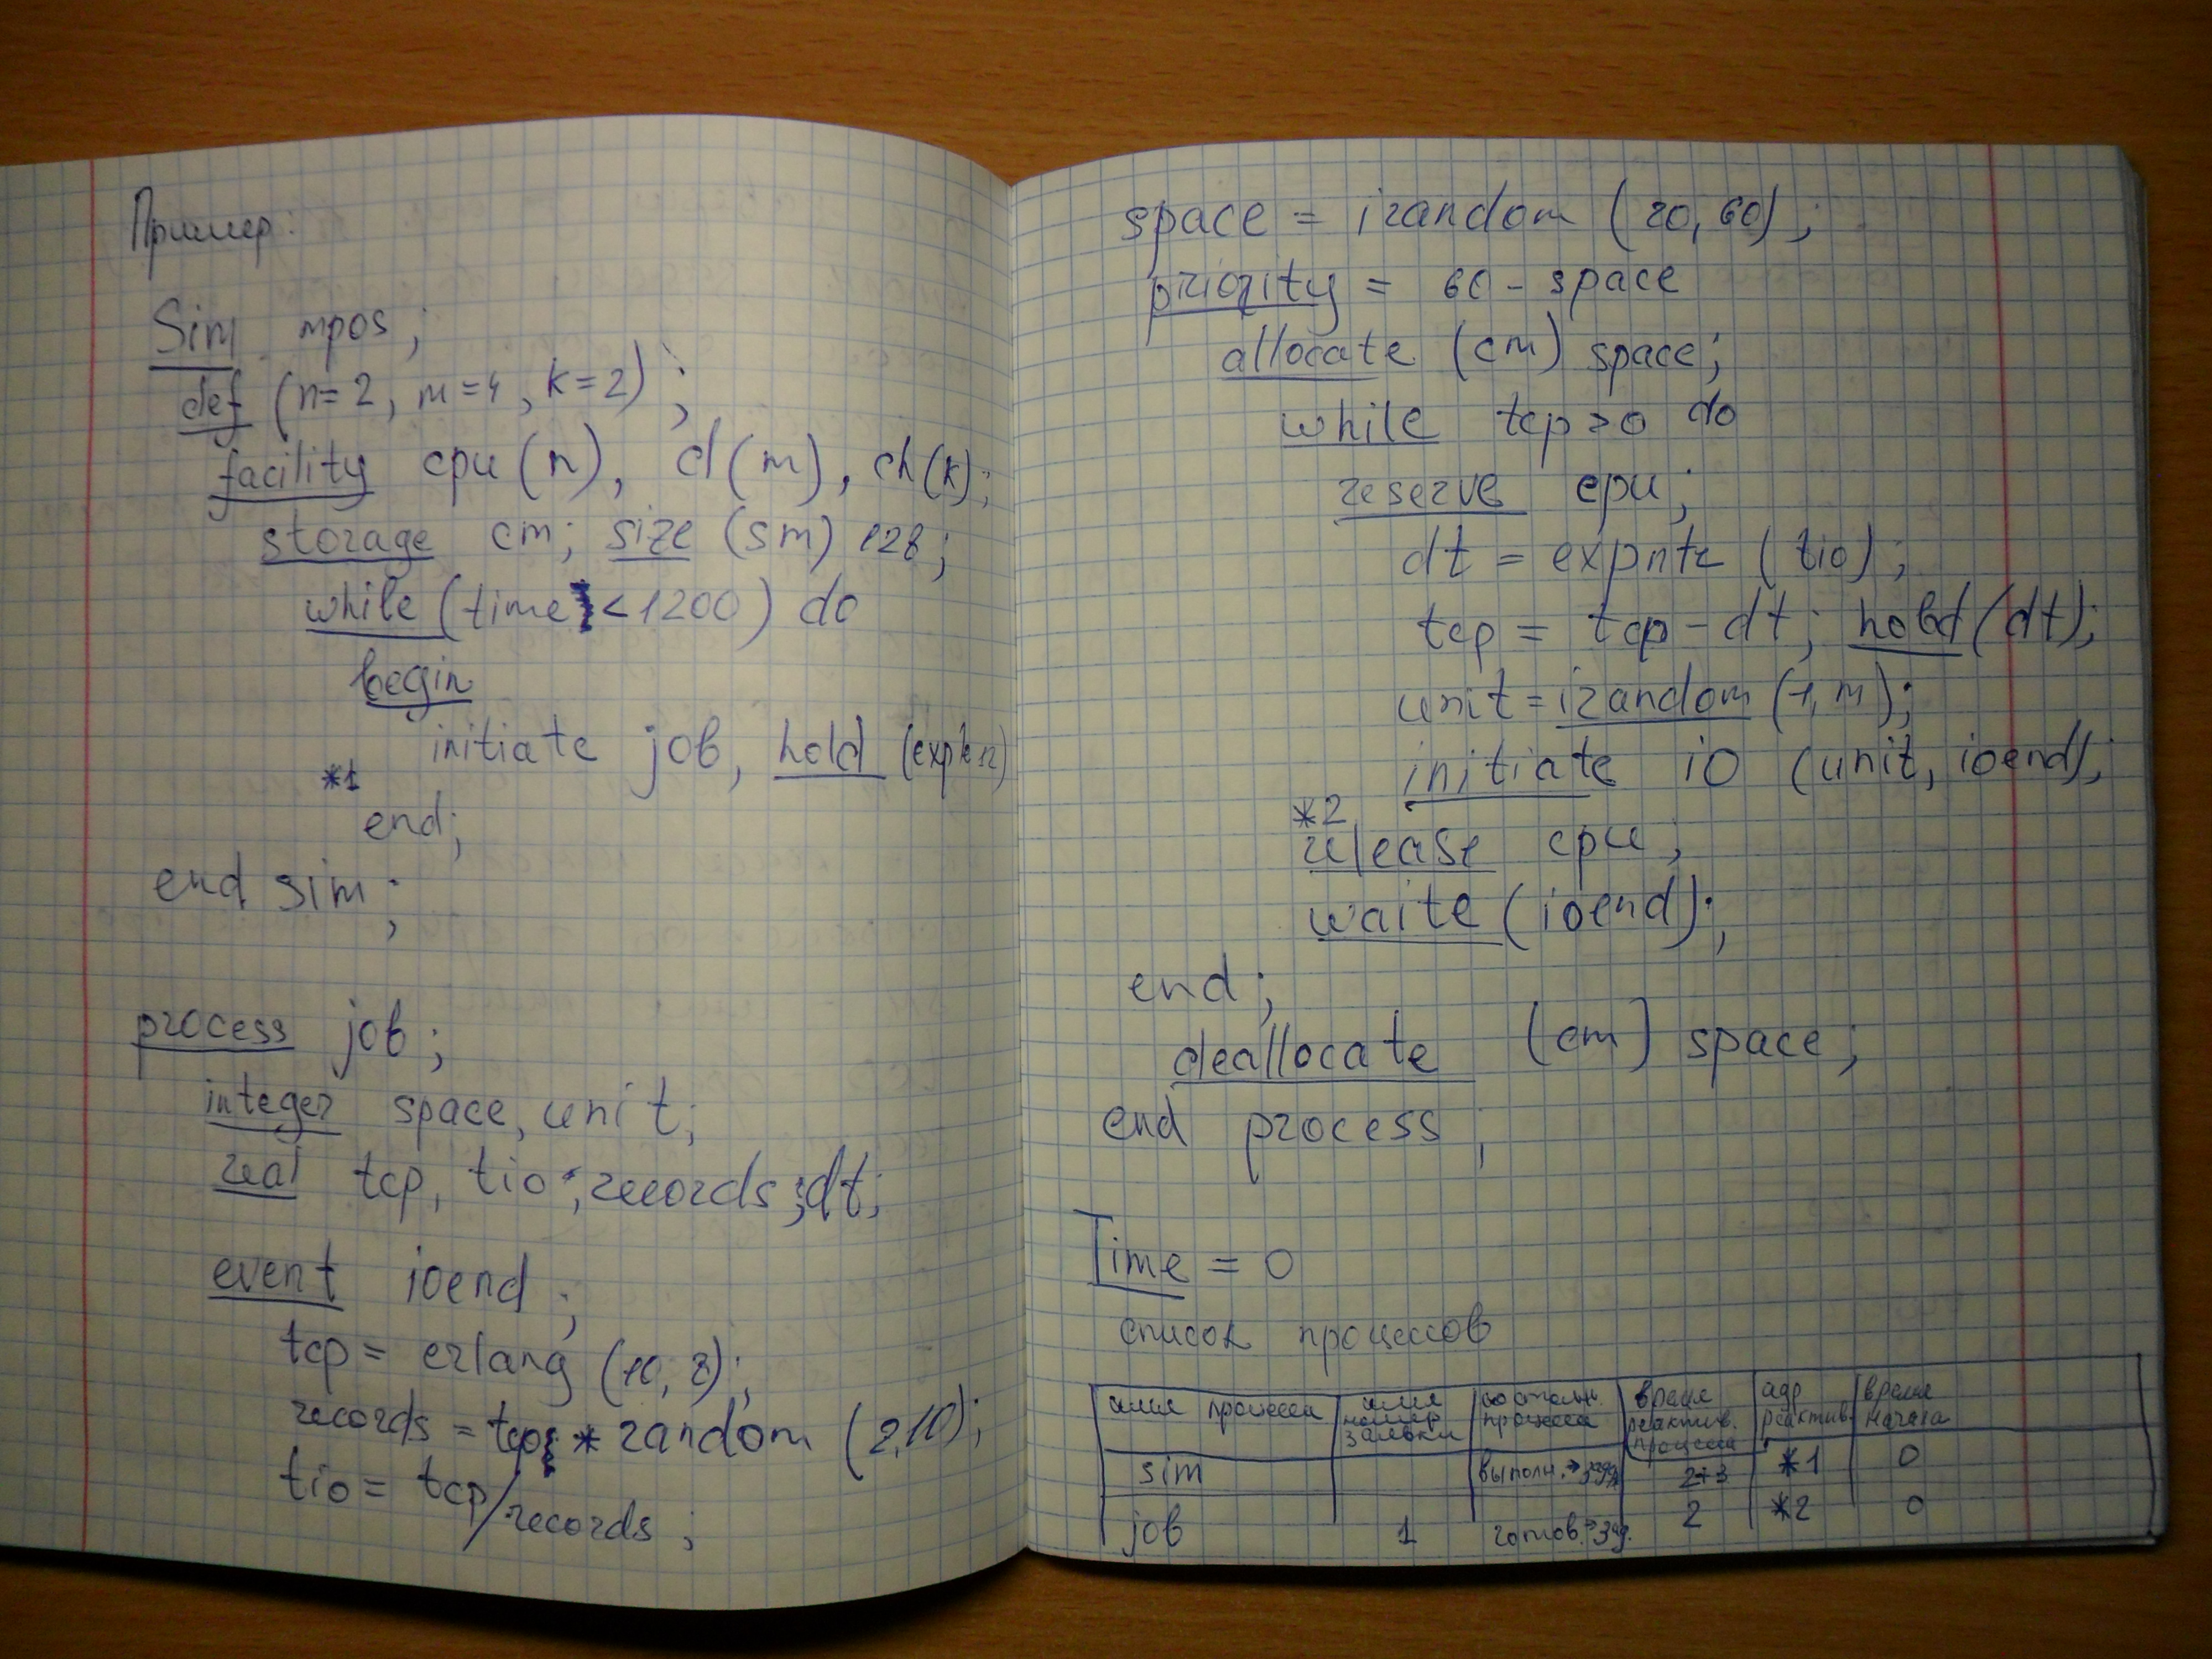 Пример:
Sim mpos;
def (n=2, m=4, k=2);
facility cpu(n), d(m), ch(k);
storage cm; size (sm) 128;
while (time<1200) do
begin
initiate job, hold
*1
end;
end sim;
process job;
integer space, unit;
real tcp, tio; records; dt;
event ioend;
tcp = erlang (10, 8);
records = tcp * random (2,10);
tio = tcp/records;
space = irandom (20, 60);
priority = 60 - space
allocate (cm) space;
while tcp>0 do
reserve cpu;
dt = expntr (tio);
tcp = tcp - dt; hold (dt);
unit = irandom (1, m);
initiate io (unit, ioend);
*2
release cpu;
waite (ioend);
end;
deallocate (cm) space;
end process;
Time = 0
список процессов
имя процесса имя номер заявки состоян. процесса время реактив. процесса адр реактив. время начала
sim выполн.→зад. 2+3 *1 0
job 1 готов.→зад. 2 *2 0